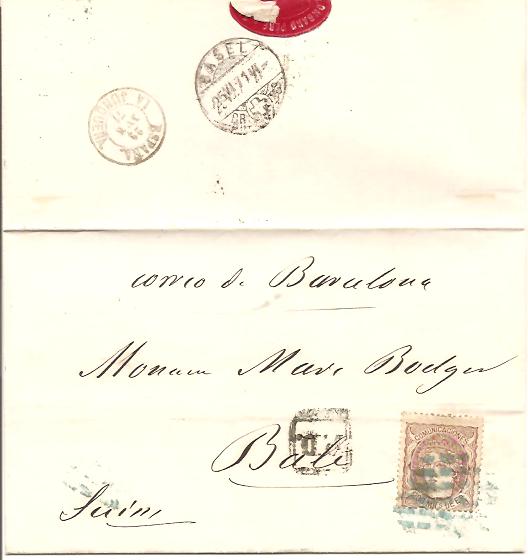 BASEL
25 VI 71 VI-
BR
ESPAÑA
LA JUNQUERA
correo de Barcelona
Monsieur Marc Bodger
P.D.
Bâle
Suisse
COMUNICACIONES